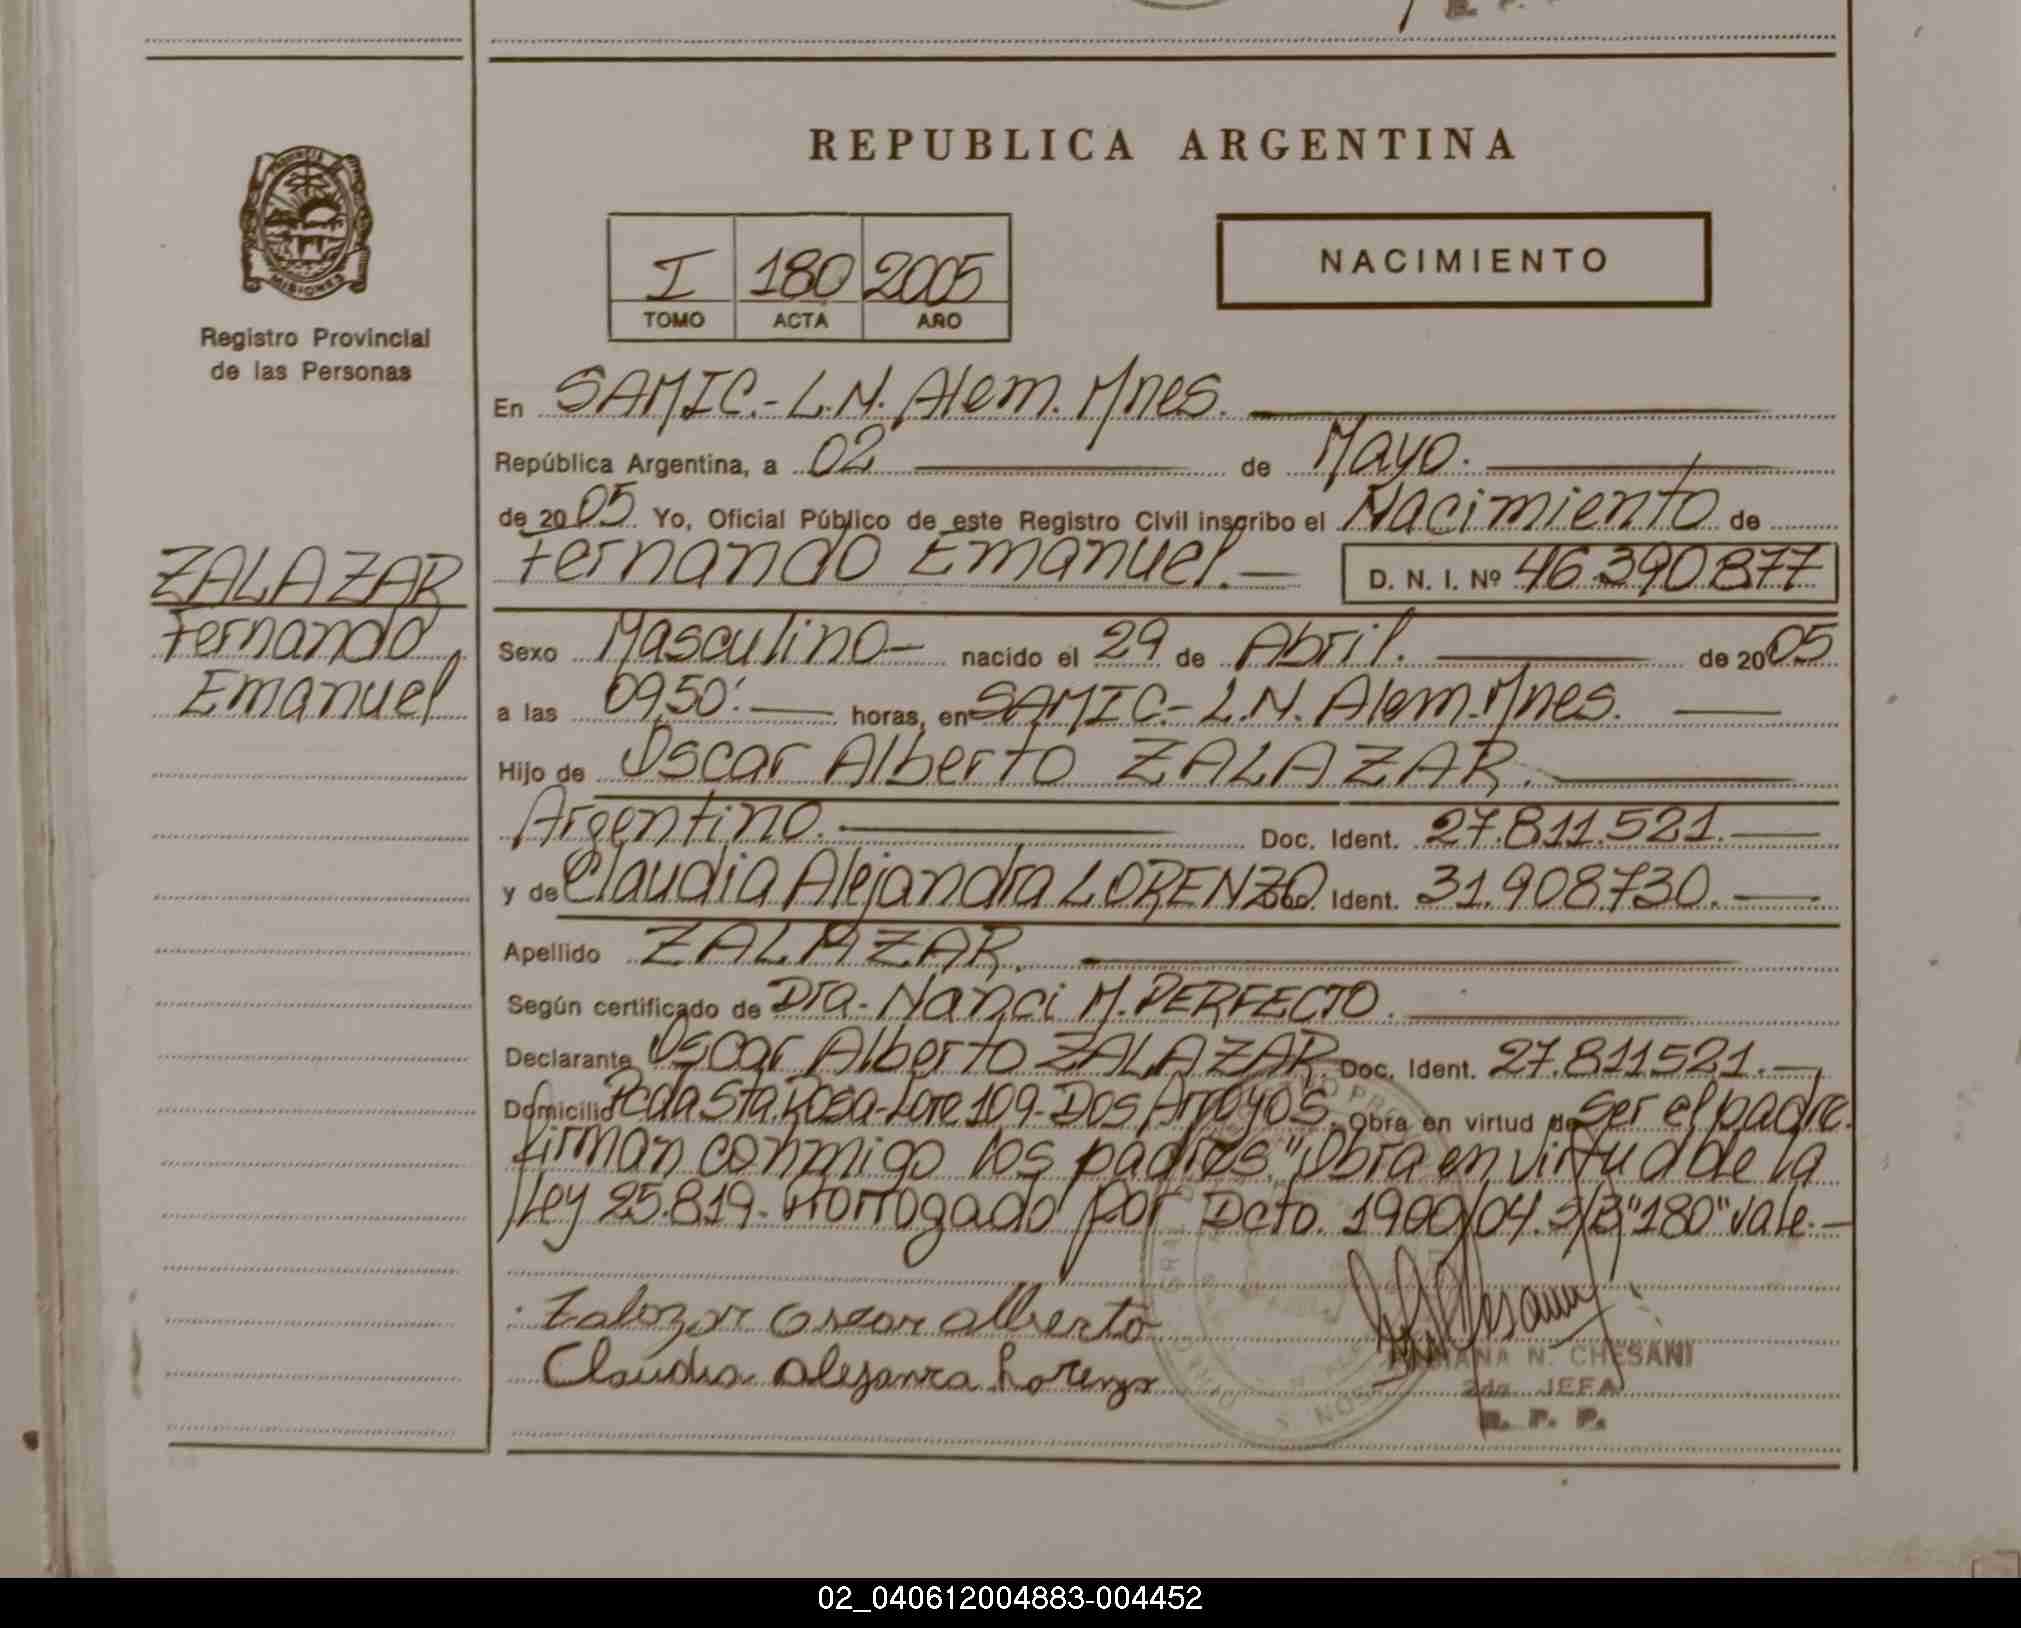 REPUBLICA ARGENTINA
PROVINCIA DE
MISIONES
Registro Provincial
de las Personas
I 180 2005
TOMO ACTA AÑO
NACIMIENTO
En SAMIC.-L.N. Alem. Mnes.
República Argentina, a 02 de Mayo.
de 2005 Yo, Oficial Público de este Registro Civil inscribo el Nacimiento de
Fernando Emanuel. D. N. I. Nº 46.390.877
ZALAZAR
Fernando
Emanuel
Sexo Masculino nacido el 29 de Abril. de 2005
a las 09,50'. horas, en SAMIC.-L.N. Alem.Mnes.
Hijo de Oscar Alberto ZALAZAR.
Argentino. Doc. Ident. 27.811.521.
y de Claudia Alejandra LORENZO Doc. Ident. 31.908.730.
Apellido ZALAZAR.
Según certificado de Dra. Nanci M. PERFECTO.
Declarante Oscar Alberto ZALAZAR. Doc. Ident. 27.811.521.
Domicilio Pcda Sta. Rosa-Lote 109-Dos Arroyos. Obra en virtud de Ser el padre.
firman conmigo los padres. "Obra en virtud de la
Ley 25.819. Prorrogado por Dcto. 1900/04. S/B "180" Vale.-
Zalazar oscar alberto
Claudia alejanra Lorenzo
N. CHESANI
2da. JEFA
R. P. P.
02_040612004883-004452